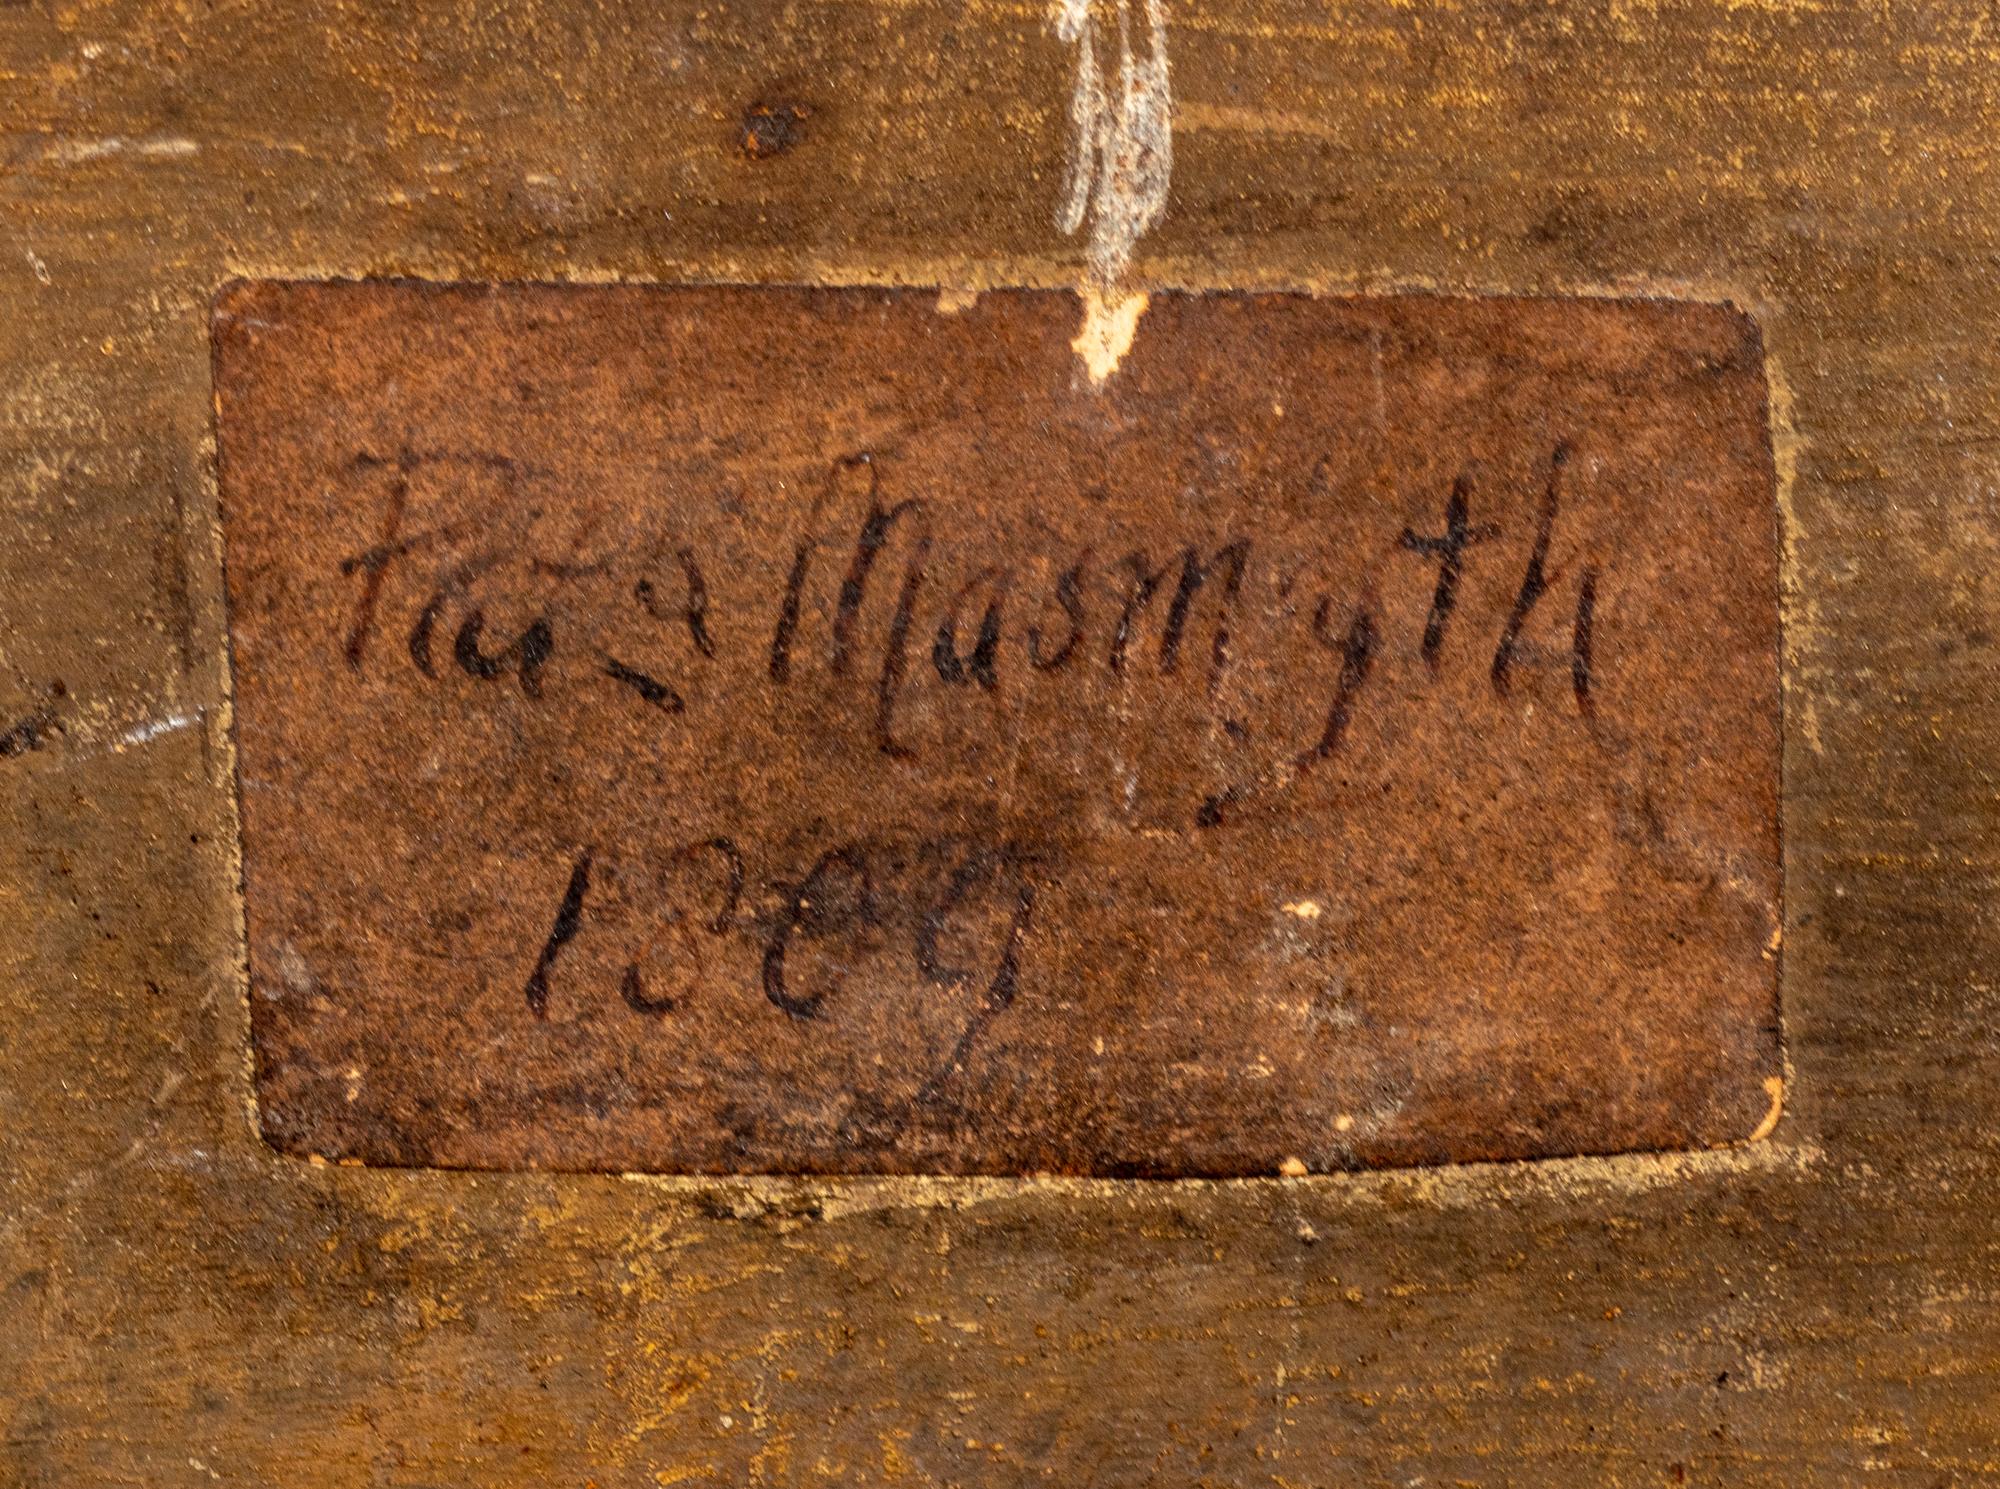 Pat. Nasmyth
1809